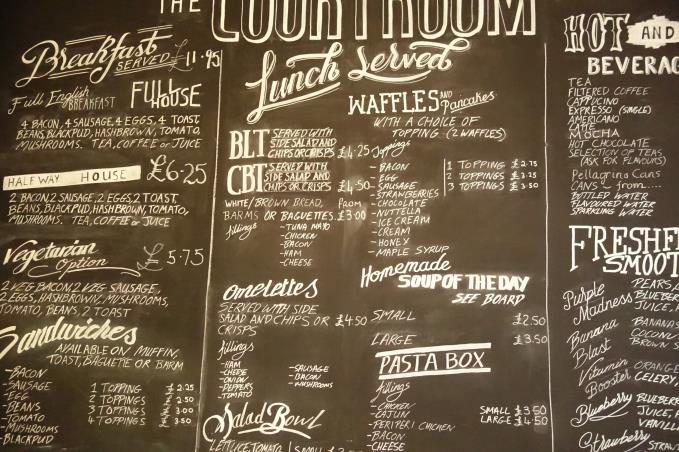 THE COURTROOM
Breakfast
SERVED £11.95
Full English
BREAKFAST FULL HOUSE
4 BACON, 4 SAUSAGE, 4 EGGS, 4 TOAST,
BEANS, BLACKPUD, HASHBROWN, TOMATO,
MUSHROOMS. TEA, COFFEE or JUICE
HALFWAY HOUSE £6.25
2 BACON 2 SAUSAGE, 2 EGGS, 2 TOAST
BEANS, BLACKPUD, HASHBROWN, TOMATO,
MUSHROOMS. TEA, COFFEE or JUICE
Vegetarian
Option £5.75
2 VEG BACON 2 VEG SAUSAGE,
2 EGGS, HASHBROWN, MUSHROOMS,
TOMATO, BEANS, 2 TOAST
Sandwiches
AVAILABLE ON MUFFIN,
TOAST, BAGUETTE OR BARM
-BACON
-SAUSAGE
-EGG
-BEANS
-TOMATO
-MUSHROOMS
-BLACKPUD
1 TOPPING £2.25
2 TOPPINGS £2.50
3 TOPPINGS £3.00
4 TOPPINGS £3.50
Lunch Served
BLT SERVED WITH
SIDE SALAD AND
CHIPS OR CRISPS £4.25
CBT SERVED WITH
SIDE SALAD AND
CHIPS OR CRISPS £4.50
WHITE/BROWN BREAD, FROM
BARMS OR BAGUETTES. £3.00
fillings
-TUNA MAYO
-CHICKEN
-BACON
-HAM
-CHEESE
Omelettes
SERVED WITH SIDE
SALAD AND CHIPS OR £4.50
CRISPS
fillings
-HAM
-CHEESE
-ONION
-PEPPERS
-TOMATO
-SAUSAGE
-BACON
-MUSHROOMS
Salad Bowl
LETTUCE, TOMATO SMALL
WAFFLES AND Pancakes
WITH A CHOICE OF
TOPPING (2 WAFFLES)
Toppings
-BACON
-EGG
-SAUSAGE
-STRAWBERRIES
-CHOCOLATE
-NUTTELLA
-ICE CREAM
-CREAM
-HONEY
-MAPLE SYRUP
1 TOPPING £2.75
2 TOPPINGS £3.25
3 TOPPINGS £3.50
Homemade
SOUP OF THE DAY
SEE BOARD
SMALL £2.50
LARGE £3.50
PASTA BOX
fillings
-CHICKEN
-CAJUN
-PERIPERI CHICKEN
-BACON
-CHEESE
SMALL £3.50
LARGE £4.50
HOT AND
BEVERAG
TEA
FILTERED COFFEE
CAPPUCINO
EXPRESSO (SINGLE)
AMERICANO
LATTE
MOCHA
HOT CHOCOLATE
SELECTION OF TEAS
(ASK FOR FLAVOURS)
Pellagrino Cans
CANS from....
BOTTLED WATER
FLAVOURED WATER
SPARKLING WATER
FRESH
SMOOT
Purple Madness PEARS, BLUEBER JUICE,
Banana Blast BANANAS COCONU BROWN S
Vitamin Booster ORANGE CELERY
Blueberry BLUEBER JUICE, VANILL
Strawberry STRAW